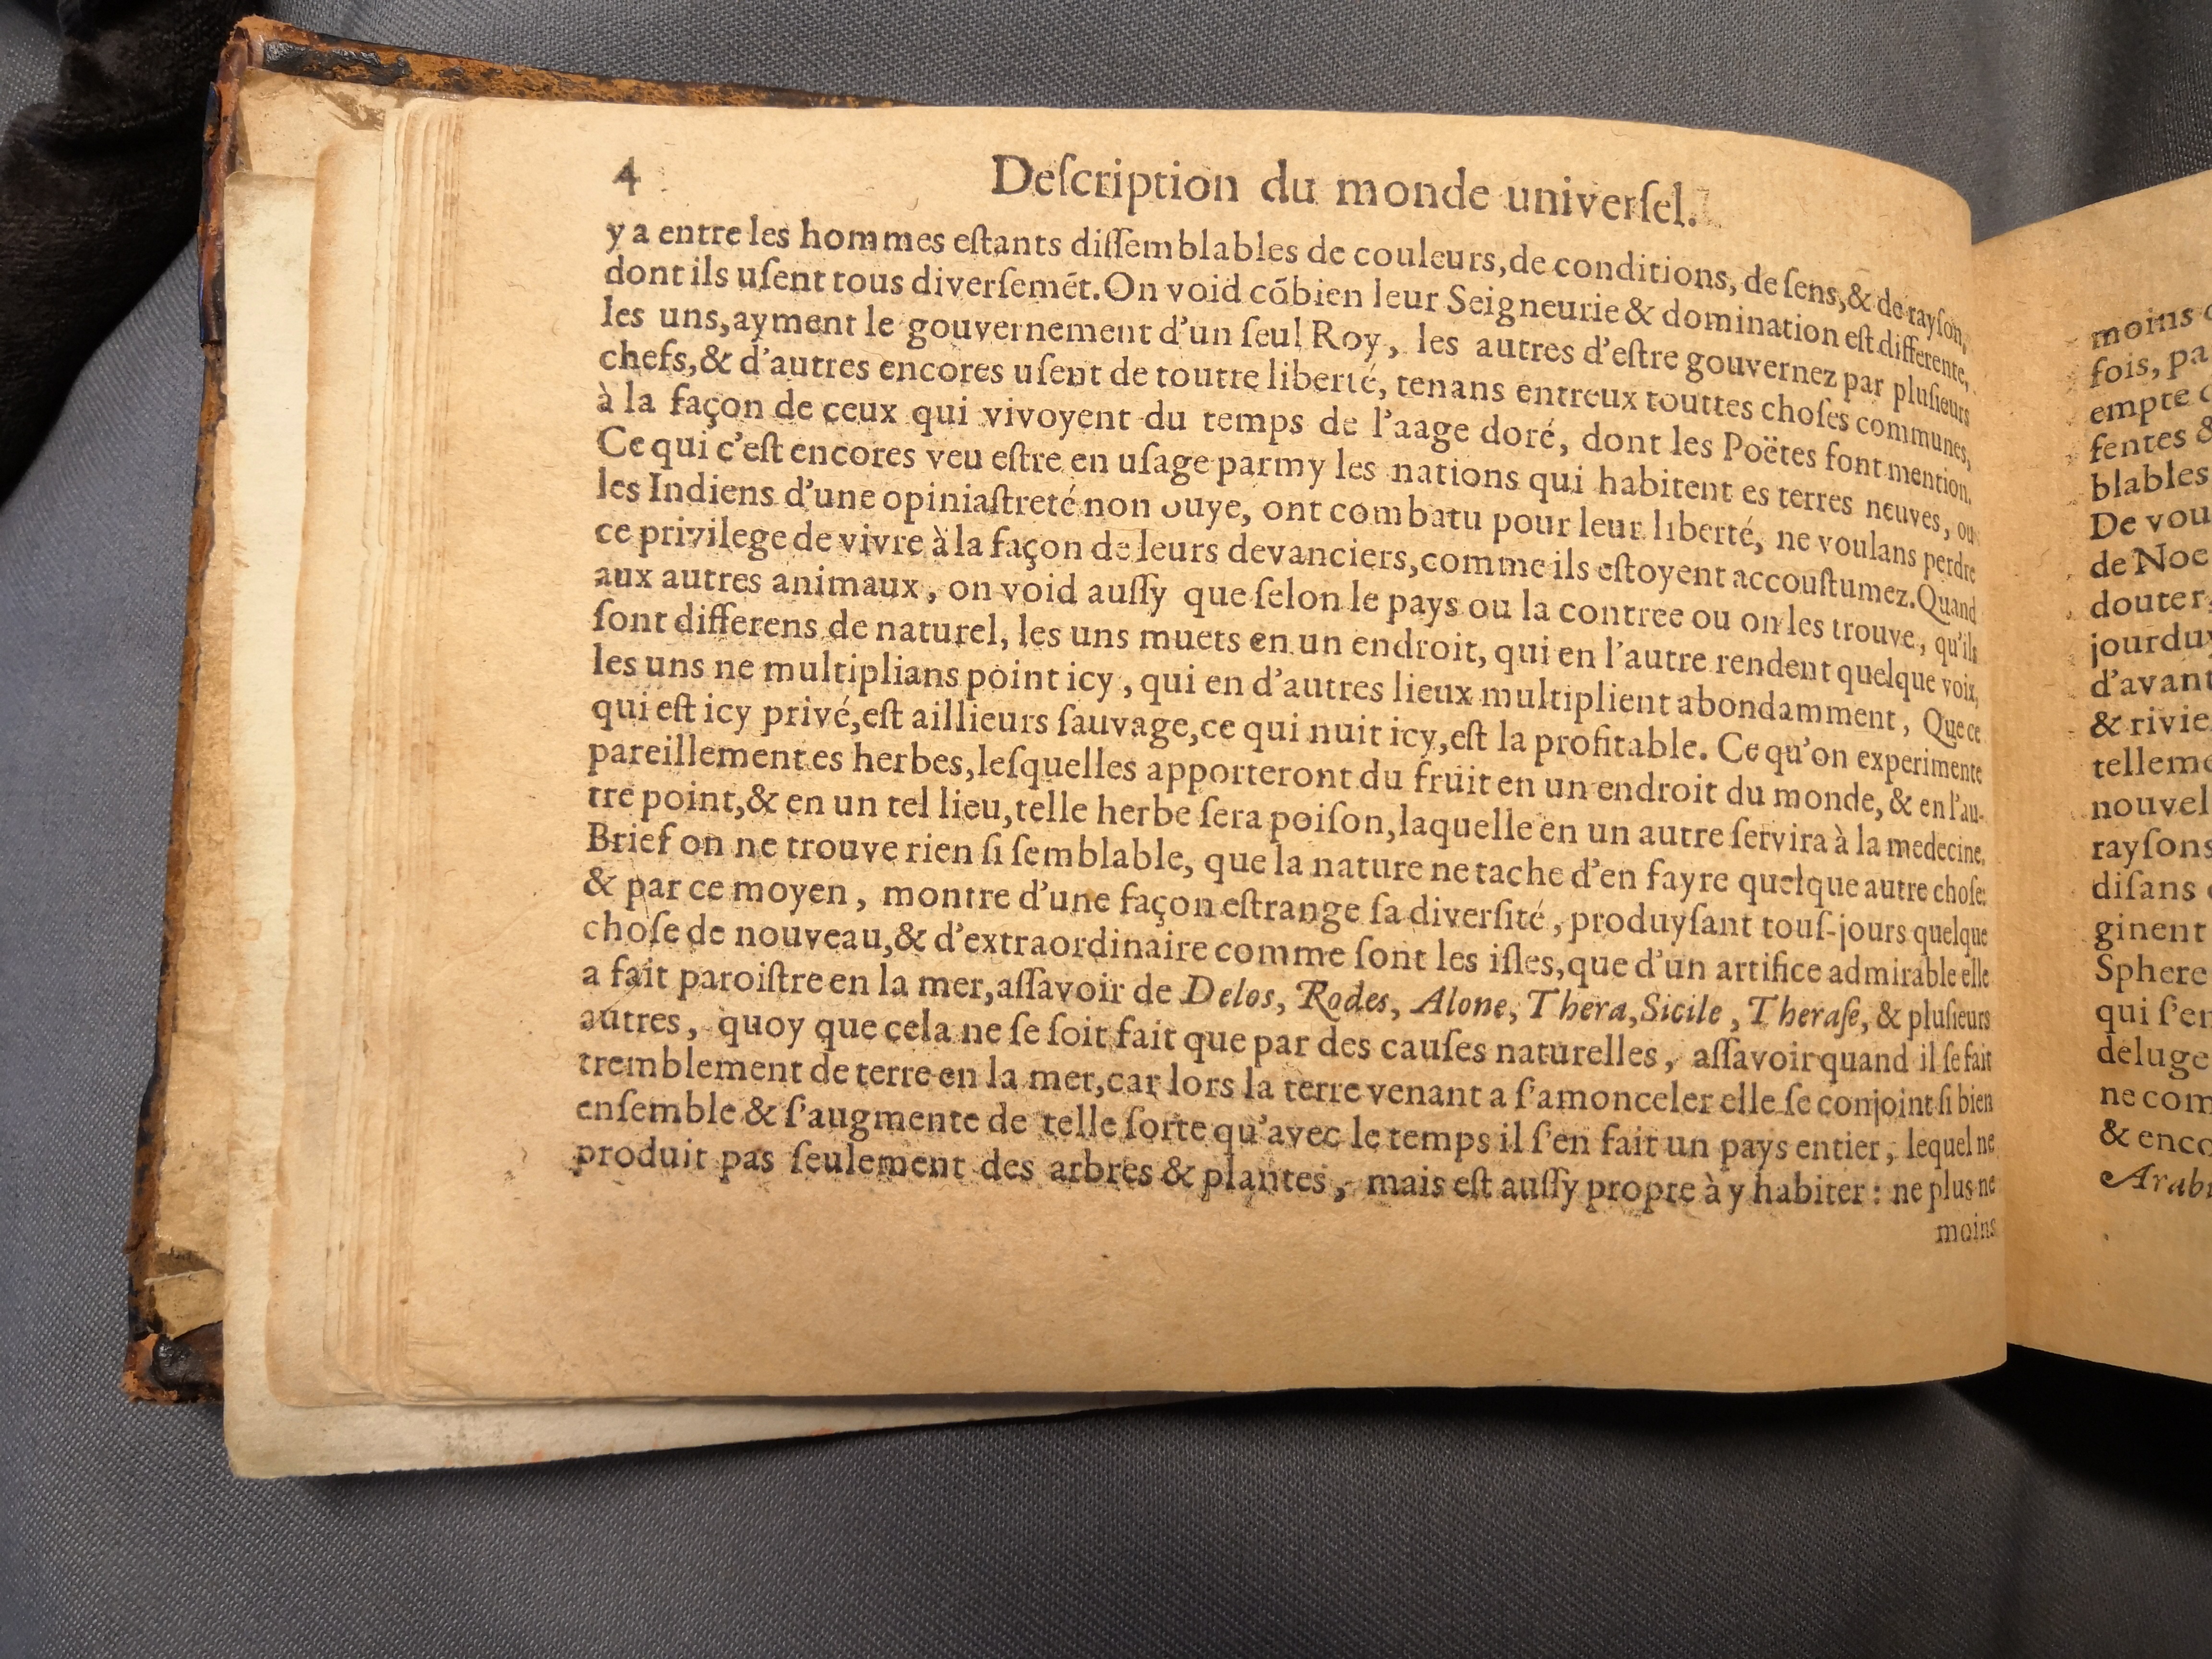 4 Deſcription du monde univerſel.
y a entre les hommes eſtants diſſemblables de couleurs, de conditions, de ſens, & de rayſon,
dont ils uſent tous diverſemēt. On void cōbien leur Seigneurie & domination eſt differente,
les uns, ayment le gouvernement d'un ſeul Roy, les autres d'eſtre gouvernez par pluſieurs
chefs, & d'autres encores uſent de toutre liberté, tenans entreux touttes choſes communes,
à la façon de ceux qui vivoyent du temps de l'aage doré, dont les Poëtes font mention.
Ce qui c'eſt encores veu eſtre en uſage parmy les nations qui habitent es terres neuves, ou
les Indiens d'une opiniaſtreté non ouye, ont combatu pour leur liberté, ne voulans perdre
ce privilege de vivre à la façon de leurs devanciers, comme ils eſtoyent accouſtumez. Quand
aux autres animaux, on void auſſy que ſelon le pays ou la contree ou on les trouve, qu'ils
ſont differens de naturel, les uns muets en un endroit, qui en l'autre rendent quelque voix,
les uns ne multiplians point icy, qui en d'autres lieux multiplient abondamment, Que ce
qui eſt icy privé, eſt aillieurs ſauvage, ce qui nuit icy, eſt la profitable. Ce qu'on experimente
pareillement es herbes, leſquelles apporteront du fruit en un endroit du monde, & en l'au-
tre point, & en un tel lieu, telle herbe ſera poiſon, laquelle en un autre ſervira à la medecine.
Brief on ne trouve rien ſi ſemblable, que la nature ne tache d'en fayre quelque autre choſe:
& par ce moyen, montre d'une façon eſtrange ſa diverſité, produyſant touſ-jours quelque
choſe de nouveau, & d'extraordinaire comme ſont les iſles, que d'un artifice admirable elle
a fait paroiſtre en la mer, aſſavoir de Delos, Rodes, Alone, Thera, Sicile, Theraſe, & pluſieurs
autres, quoy que cela ne ſe ſoit fait que par des cauſes naturelles, aſſavoir quand il ſe fait
tremblement de terre en la mer, car lors la terre venant a ſ'amonceler elle ſe conjoint ſi bien
enſemble & ſ'augmente de telle ſorte qu'avec le temps il ſ'en fait un pays entier, lequel ne
produit pas ſeulement des arbres & plantes, mais eſt auſſy propre à y habiter: ne plus ne
moins
moins
fois, pa
empte
fentes &
blables
De vou
de Noe
douter,
jourduy
d'avant
& rivie
telleme
nouvel
rayſons
diſans
ginent
Sphere
qui ſ'en
deluge
ne com
& enco
Arabi